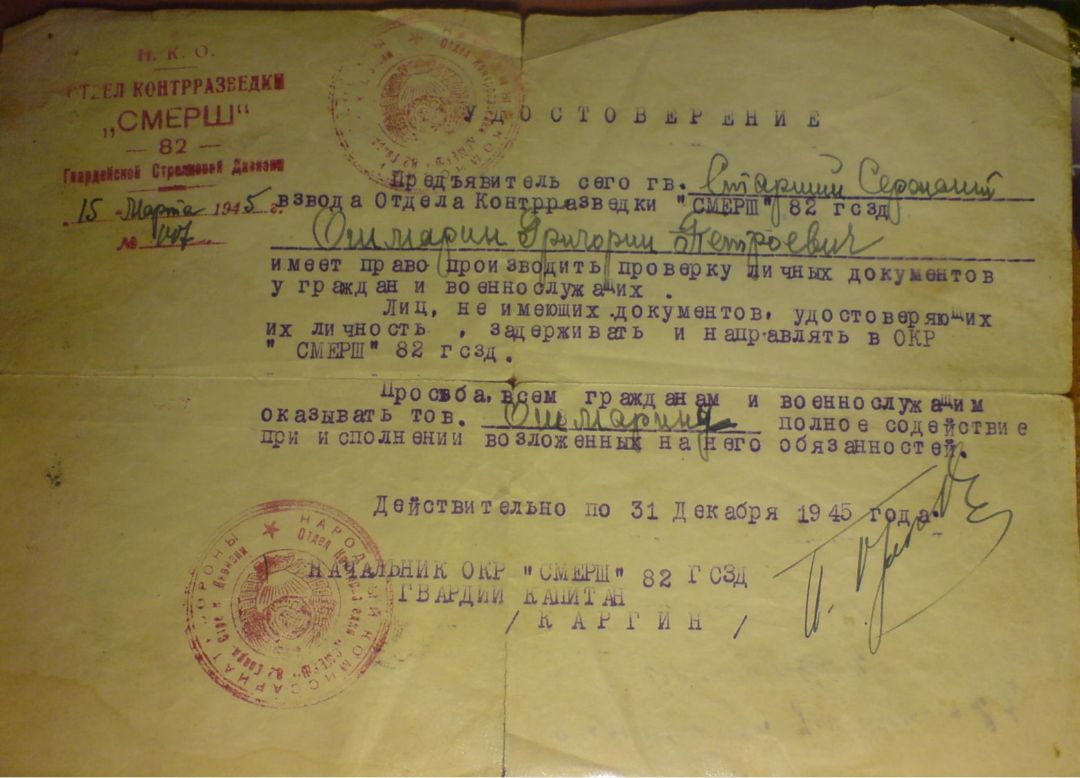 Н. К. О.
ОТДЕЛ КОНТРРАЗВЕДКИ
„СМЕРШ“
— 82 —
Гвардейской Стрелковой Дивизии
15 Марта 1945 г.
№ 147
УДОСТОВЕРЕНИЕ
Предъявитель сего гв. Старший Сержант
взвода Отдела Контрразведки "СМЕРШ" 82 гсзд
Ошмарин Григорий Петрович
имеет право производить проверку личных документов
у граждан и военнослужащих.
Лиц, не имеющих документов, удостоверяющих
их личность, задерживать и направлять в ОКР
"СМЕРШ" 82 гсзд.
Просьба всем гражданам и военнослужащим
оказывать тов. Ошмарину полное содействие
при исполнении возложенных на него обязанностей.
Действительно по 31 Декабря 1945 года.
НАЧАЛЬНИК ОКР "СМЕРШ" 82 ГСЗД
ГВАРДИИ КАПИТАН
/ КАРГИН /
НАРОДНЫЙ КОМИССАРИАТ ОБОРОНЫ